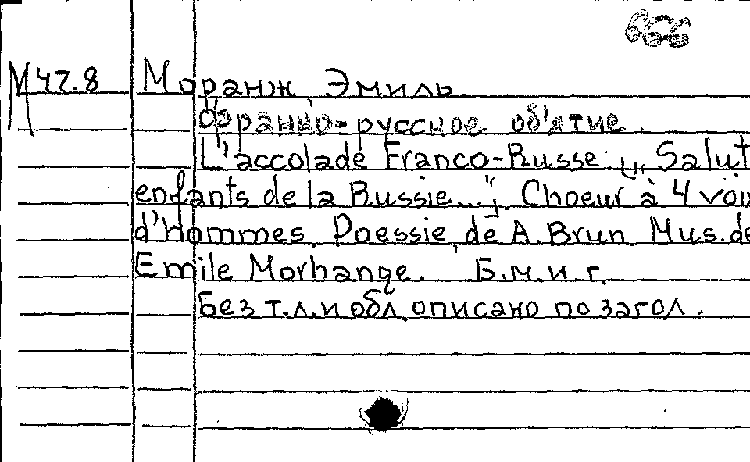 656
М 47.8 Моранж Эмиль
Франко-русское об'ятие.
L'accolade Franco-Russe. „Salut
enfants de la Russie..."; Choeur à 4 voix
d'Hommes. Poessie de A. Brun Mus. de
Emile Morhange. Б.м.и г.
Без т.л. и обл. описано по загол.